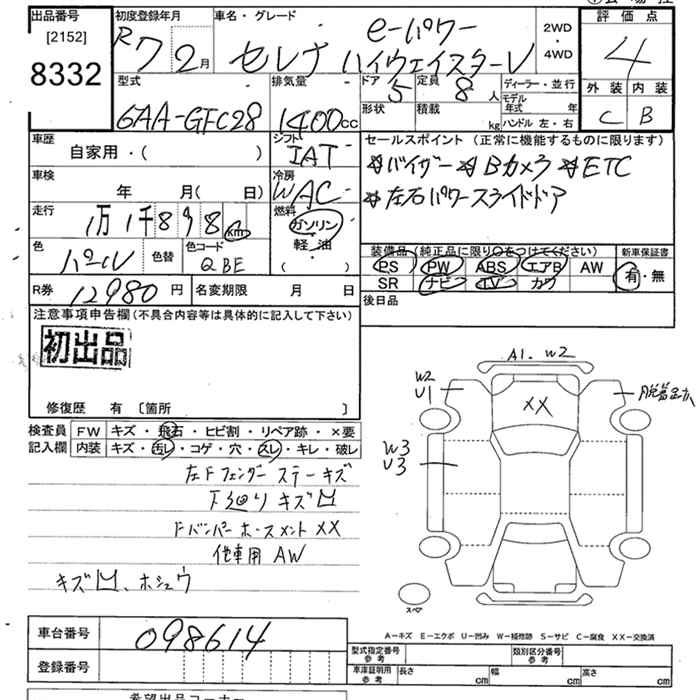 出品番号 初度登録年月 車名・グレード 評価点
[2152] R7 2月 e-パワー 2WD・4WD
8332 セレナ ハイウェイスターV 4
型式 排気量 ドア 5 定員 8人 ディーラー・並行 外装 内装
6AA-GFC28 1400cc 形状 積載 kg モデル年式 年 ハンドル 左・右 C B
車歴 シフト セールスポイント (正常に機能するものに限ります)
自家用・( ) IAT ☆バイザー ☆Bカメラ ☆ETC
車検 冷房 ☆左右パワースライドドア
年 月( 日) WAC
走行 燃料
1万1千898km ガソリン
軽油
( )
色 パール 色替 色コード QBE 装備品 (純正品に限り〇をつけてください) 新車保証書
PS PW ABS エアB AW 有・無
R券 12980円 名変期限 月 日 SR ナビ TV カワ
注意事項申告欄 (不具合内容等は具体的に記入して下さい) 後日品
初出品
A1. W2
W2
U1
XX
W3
U3
修復歴 有 [箇所 ]
検査員 FW キズ・飛石・ヒビ割・リペア跡・×要
記入欄 内装 キズ・汚レ・コゲ・穴・スレ・キレ・破レ
左Fフェンダー ステーキズ
下廻りキズ凹
FバンパーホースメントXX
他車用AW
キズ凹、ホシュウ
スペア
A-キズ E-エクボ U-凹み W-補修跡 S-サビ C-腐食 XX-交換済
車台番号 098614
登録番号
型式指定番号 参考 類別区分番号 参考
車庫証明用 参考 長さ cm 幅 cm 高さ cm
希望出品コーナー